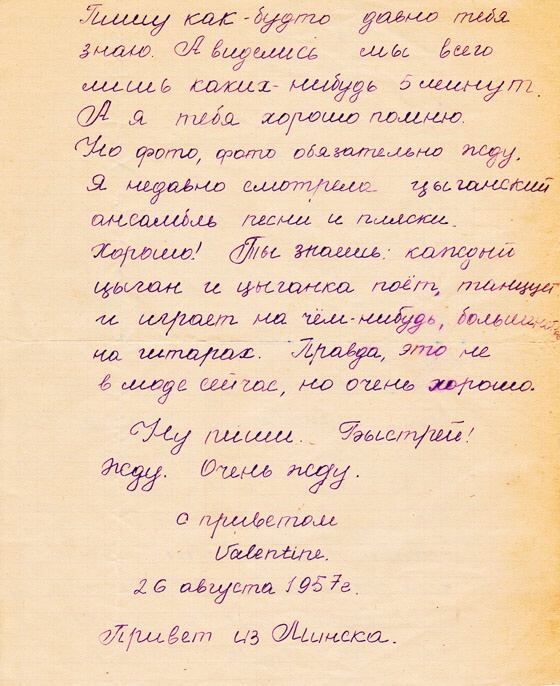 Пишу как-будто давно тебя
знаю. А виделись мы всего
лишь каких-нибудь 5 минут.
А я тебя хорошо помню.
Но фото, фото обязательно жду.
Я недавно смотрела цыганский
ансамбль песни и пляски.
Хорошо! Ты знаешь: каждый
цыган и цыганка поёт, танцует
и играет на чём-нибудь,
на гитарах. Правда, это не
в моде сейчас, но очень хорошо.
Ну пиши. Быстрей!
Жду. Очень жду.
с приветом
Valentine.
26 августа 1957г.
Привет из Минска.